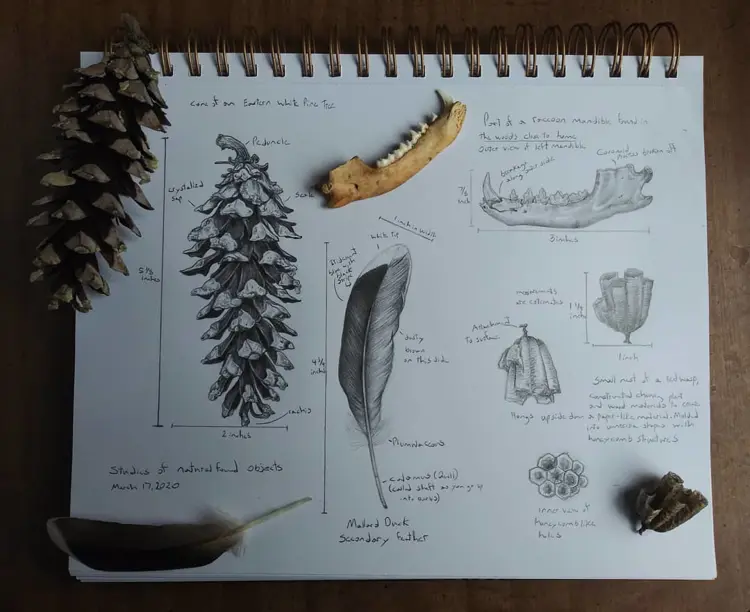 cone of an Eastern White Pine Tree
Peduncle
crystallized
sap
scale
5 1/8
inches
2 inches
rachis
Studies of natural found objects
March 17, 2020
1 inch in width
white tip
blue with
black
stripe
dusty
brown
on this side
4 3/4
inches
Plumulaceous
calamus (quill)
(called shaft as you go up
into
Mallard Duck
Secondary Feather
Part of a raccoon mandible found in
the woods close to home
outer view of left mandible
Coronoid
process broken off
broken
along
side
7/8
inch
3 inches
measurements
are
1 1/4
inch
1 inch
Attachment
to surface
Hangs upside down
Small nest of a
constructed chewing plant
and wood materials to create
a paper-like material. Molded
into
shapes with
honeycomb structures
inner view of
honeycomb like
holes